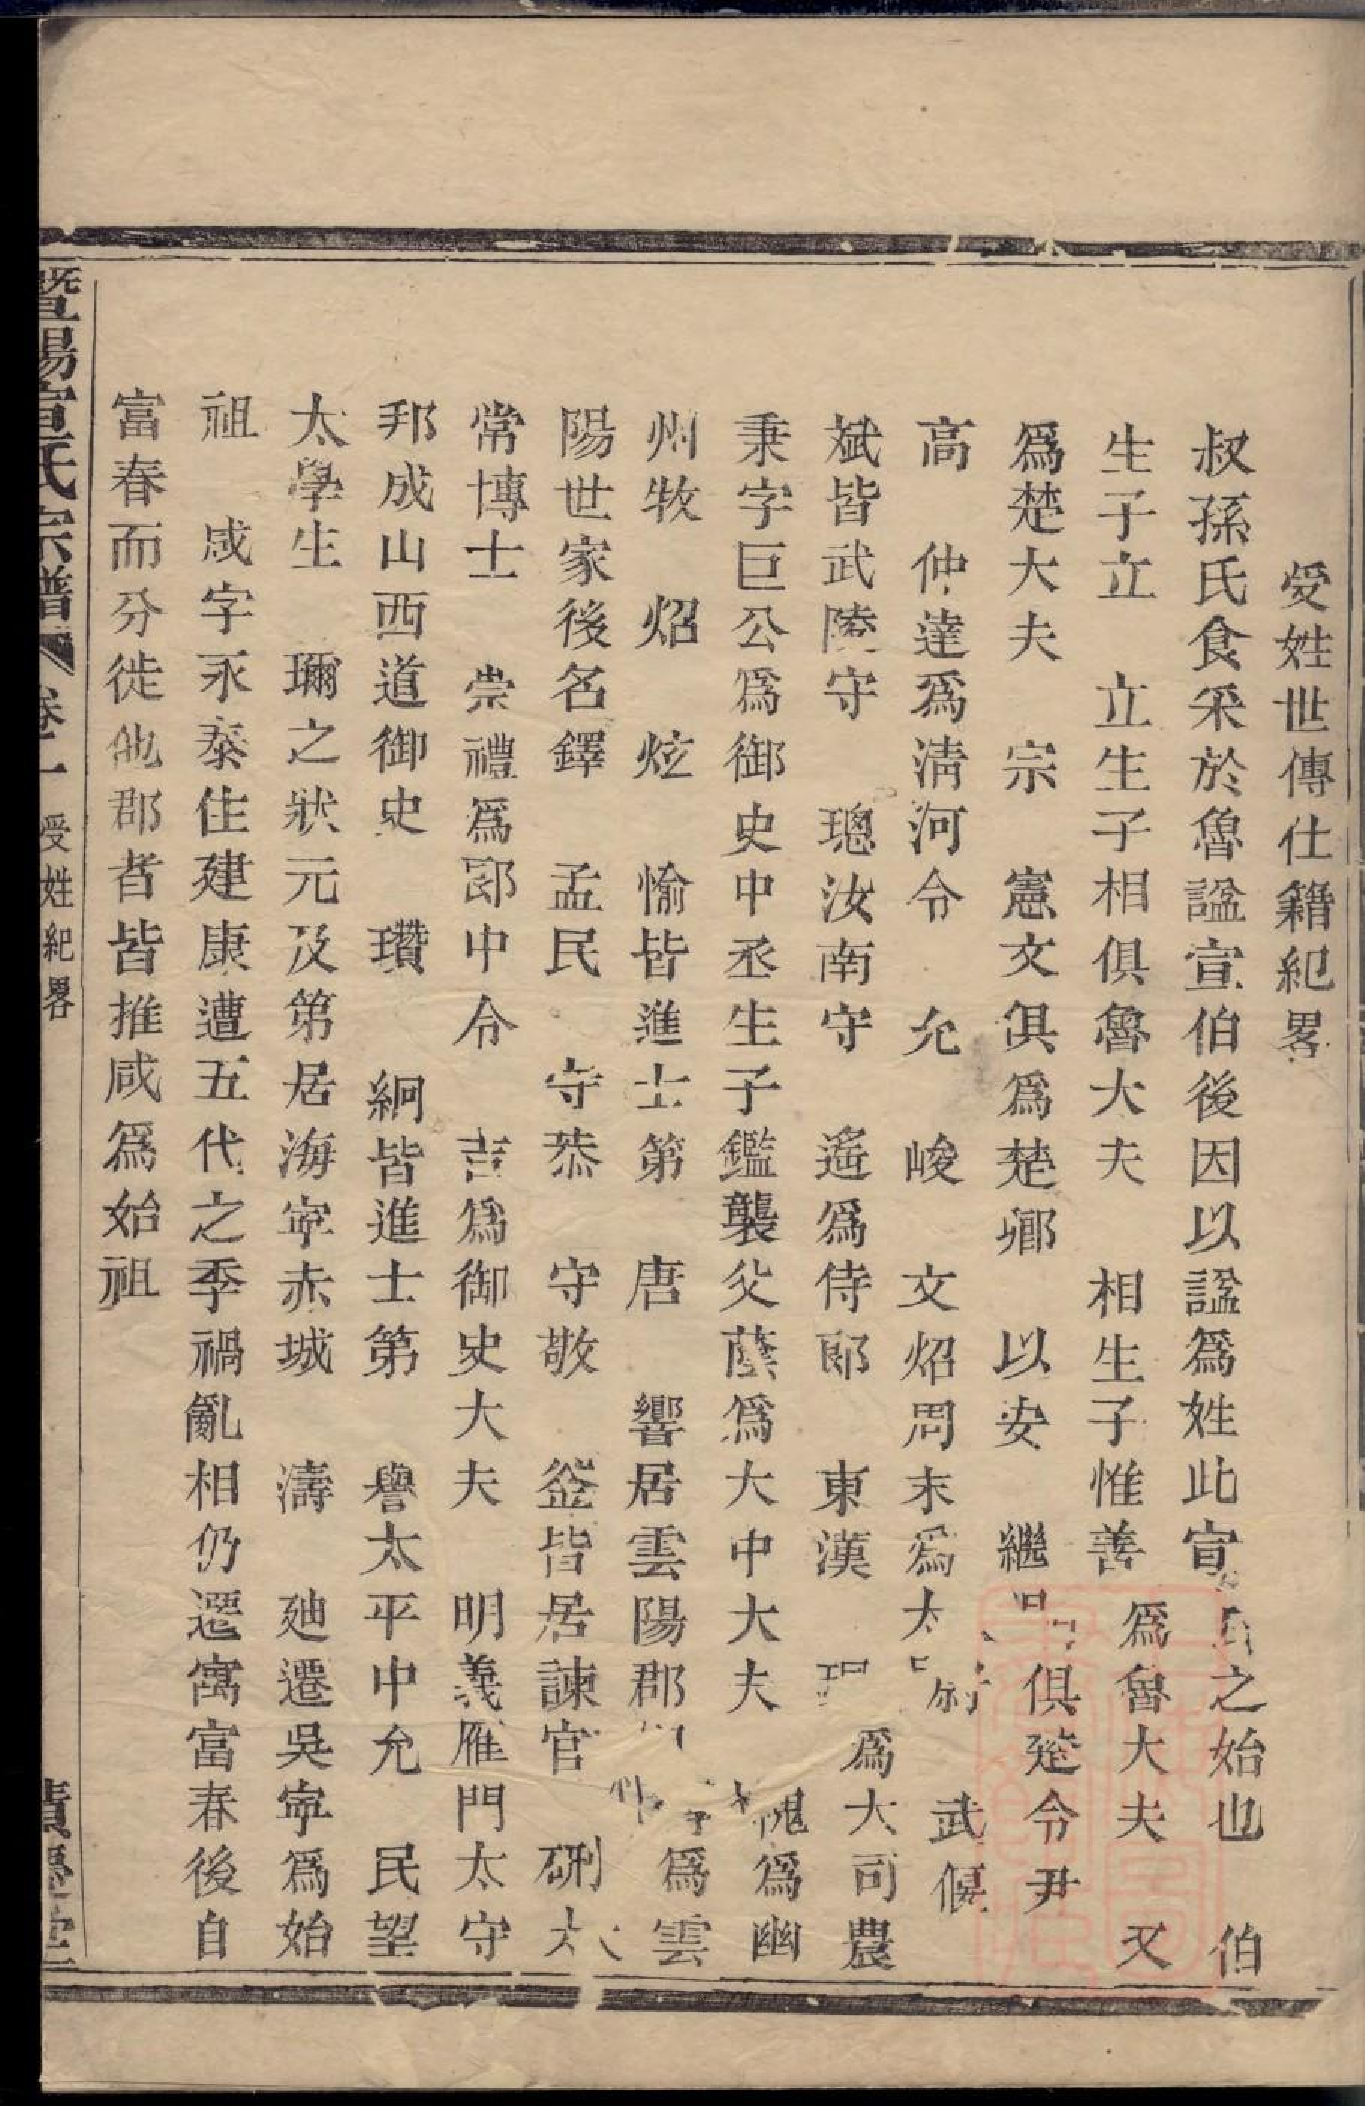 受姓世傳仕籍紀畧
叔孫氏食采於魯諡宣伯後因以諡爲姓此宣之始也 伯
生子立 立生子相俱魯大夫 相生子惟善 爲魯大夫 又
爲楚大夫 宗 憲文俱爲楚鄉 以安 繼 俱楚令尹
高 仲達爲淸河令 允 峻 文炤周末爲太 武偃
斌皆武陵守 璁汝南守 遙爲侍郞 東漢 爲大司農
秉字巨公爲御史中丞生子鑑襲父蔭爲大中大夫 爲幽
州牧 炤 炫 愉皆進士第 唐 響居雲陽郡 爲雲
陽世家後名鐸 孟民 守恭 守敬 䤥皆居諫官 硎太
常博士 崇禮爲郞中令 吉爲御史大夫 明義雁門太守
邦成山西道御史 瓚 絅皆進士第 譽太平中允 民望
太學生 璽之狀元及第居海寧赤城 濤 廸遷吳寧爲始
祖 咸字永泰住建康遭五代之季禍亂相仍遷寓富春後自
富春而分徙他郡者皆推咸爲始祖
暨陽宣氏宗譜 卷一 受姓紀畧